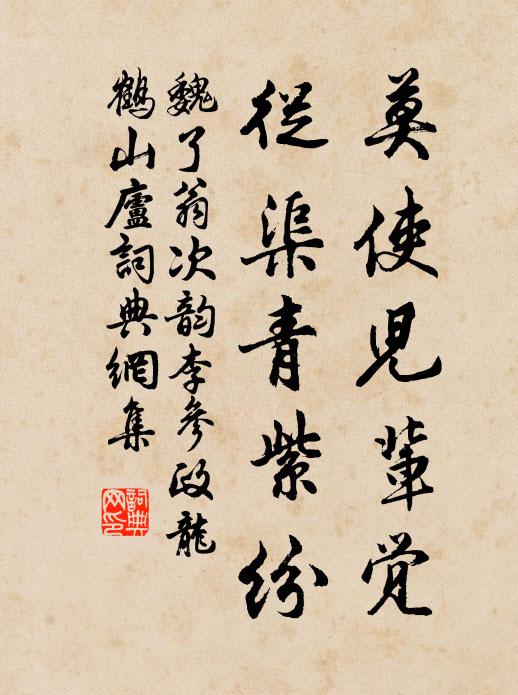 莫使児輩覚
從渠青紫紛
魏了翁次韵李參政龍
鶴山廬詞典網集
詞典网印